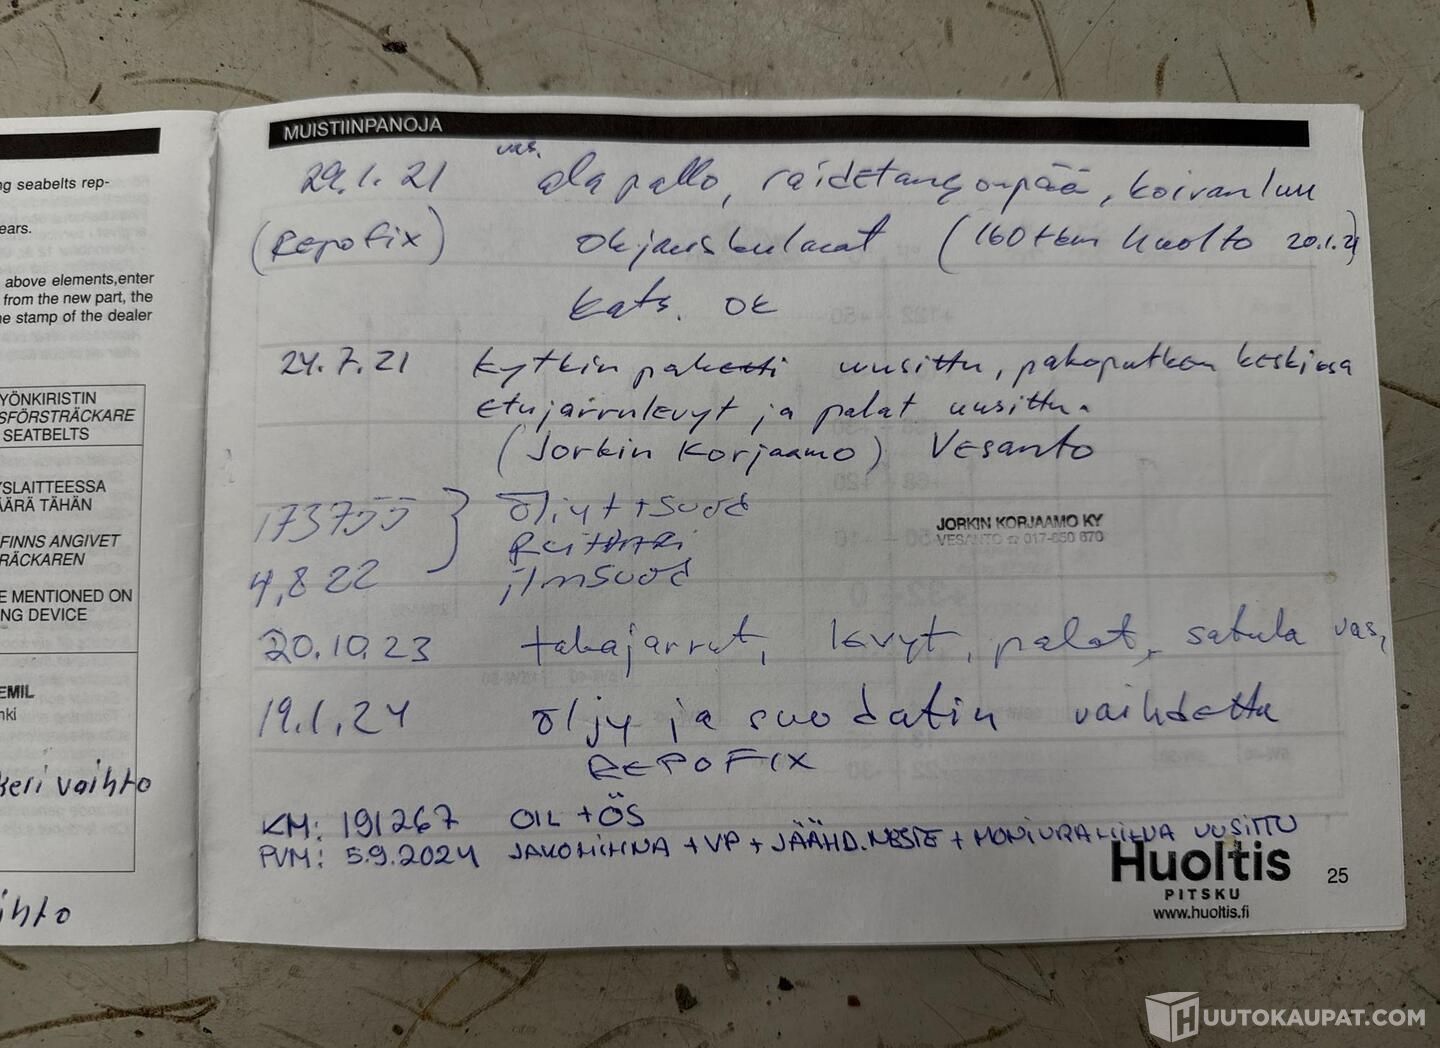 ng seabelts rep-
ears.
above elements,enter
from the new part, the
e stamp of the dealer
YÖNKIRISTIN
SFÖRSTRÄCKARE
SEATBELTS
YSLAITTEESSA
ÄÄRÄ TÄHÄN
FINNS ANGIVET
RÄCKAREN
E MENTIONED ON
NG DEVICE
EMIL
nki
keri vaihto
ihto
MUISTIINPANOJA
29.1.21 vas. alapallo, raidetangonpää, koiranluu
(Repofix) ohjauskulmat (160tkm huolto 20.1.21)
kats. ok
24.7.21 kytkinpaketti uusittu, pakoputken keskiosa
etujarrulevyt ja palat uusittu.
(Jorkin Korjaamo) Vesanto
173755 öljyt+suod
JORKIN KORJAAMO KY
VESANTO ☎ 017-650 670
Raitisi
4,8 22 ilmsuod
20.10.23 takajarrut, levyt, palat, satula vas,
19.1.24 öljy ja suodatin vaihdettu
REPOFIX
KM: 191267 OIL + ÖS
PVM: 5.9.2024 JAKOHIHNA + VP + JÄÄHD.NESTE + MONIURAHIHNA UUSITTU
Huoltis
PITSKU
www.huoltis.fi
25
HUUTOKAUPAT.COM